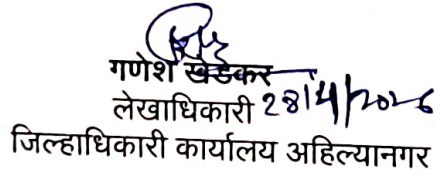 गणेश खेडकर
लेखाधिकारी 28/4/2026
जिल्हाधिकारी कार्यालय अहिल्यानगर